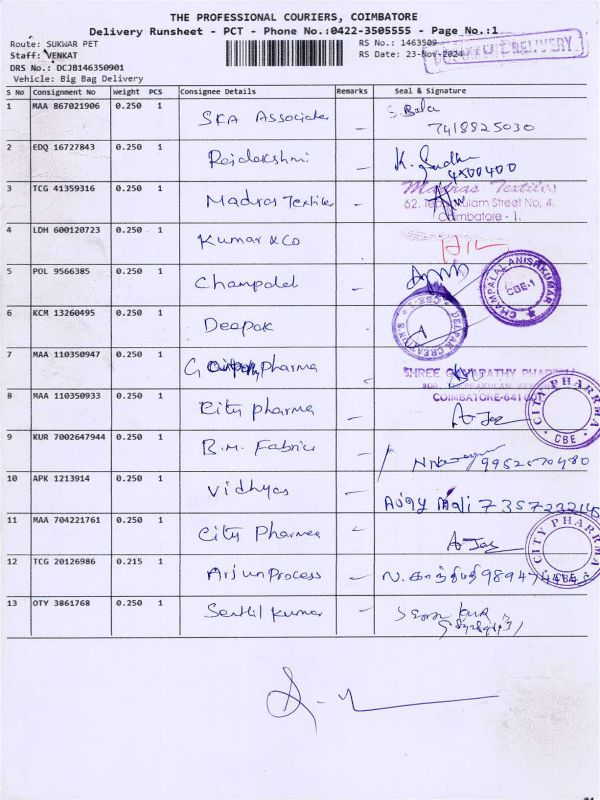 THE PROFESSIONAL COURIERS, COIMBATORE
Delivery Runsheet - PCT - Phone No.:0422-3505555 - Page No.:1
Route: SUKWAR PET
RS No.: 1463509
Staff: VENKAT
RS Date: 23-Nov-2024
DRS No.: DCJB146350901
Vehicle: Big Bag Delivery
DELIVERY
S No Consignment No Weight PCS Consignee Details Remarks Seal & Signature
1 MAA 867021906 0.250 1 SKA Associates - S. Bala
7418825030
2 EDQ 16727843 0.250 1 Rajalakshmi - K.
4500400
3 TCG 41359316 0.250 1 Madras Textiles - Madras Textiles
62, Street No, 4,
Coimbatore - 1.
4 LDH 600120723 0.250 1 Kumar & Co
5 POL 9566385 0.250 1 Champalal - CHAMPALAL ANISHKUMAR
CBE-1
6 KCM 13260495 0.250 1 Deepak DEEPAK CREATIONS
CBE-1
7 MAA 110350947 0.250 1 Pharma SHREE PHARMA
COIMBATORE-641
8 MAA 110350933 0.250 1 City pharma - CITY PHARRMA
CBE
9 KUR 7002647944 0.250 1 R.M. Fabrics - 9952570480
10 APK 1213914 0.250 1 Vidhyas - 7357232145
11 MAA 704221761 0.250 1 City Pharma - CITY PHARRMA
CBE
12 TCG 20126986 0.215 1 Arjun Process -
13 OTY 3861768 0.250 1 Senthil kumar -